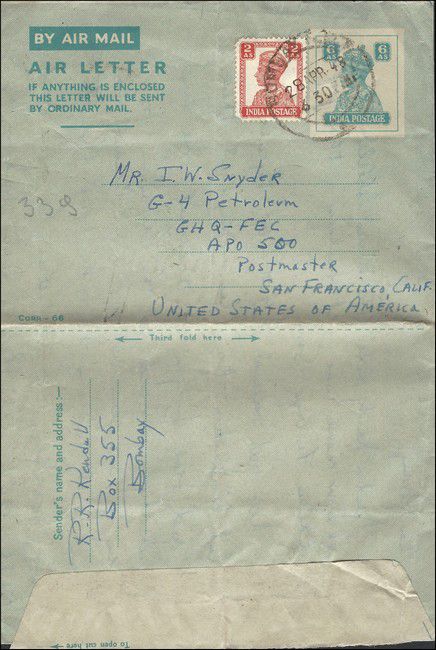 BY AIR MAIL
AIR LETTER
IF ANYTHING IS ENCLOSED
THIS LETTER WILL BE SENT
BY ORDINARY MAIL.
2 AS
2 AS
INDIA POSTAGE
6 AS
6 AS
INDIA POSTAGE
28 APR. 48
30
Mr. I. W. Snyder
G-4 Petroleum
GHQ-FEC
APO 500
Postmaster
San Francisco, Calif.
United States of America
339
CORR-66
Third fold here
Sender's name and address :—
R. R. Kendall
Box 355
Bombay
To open cut here